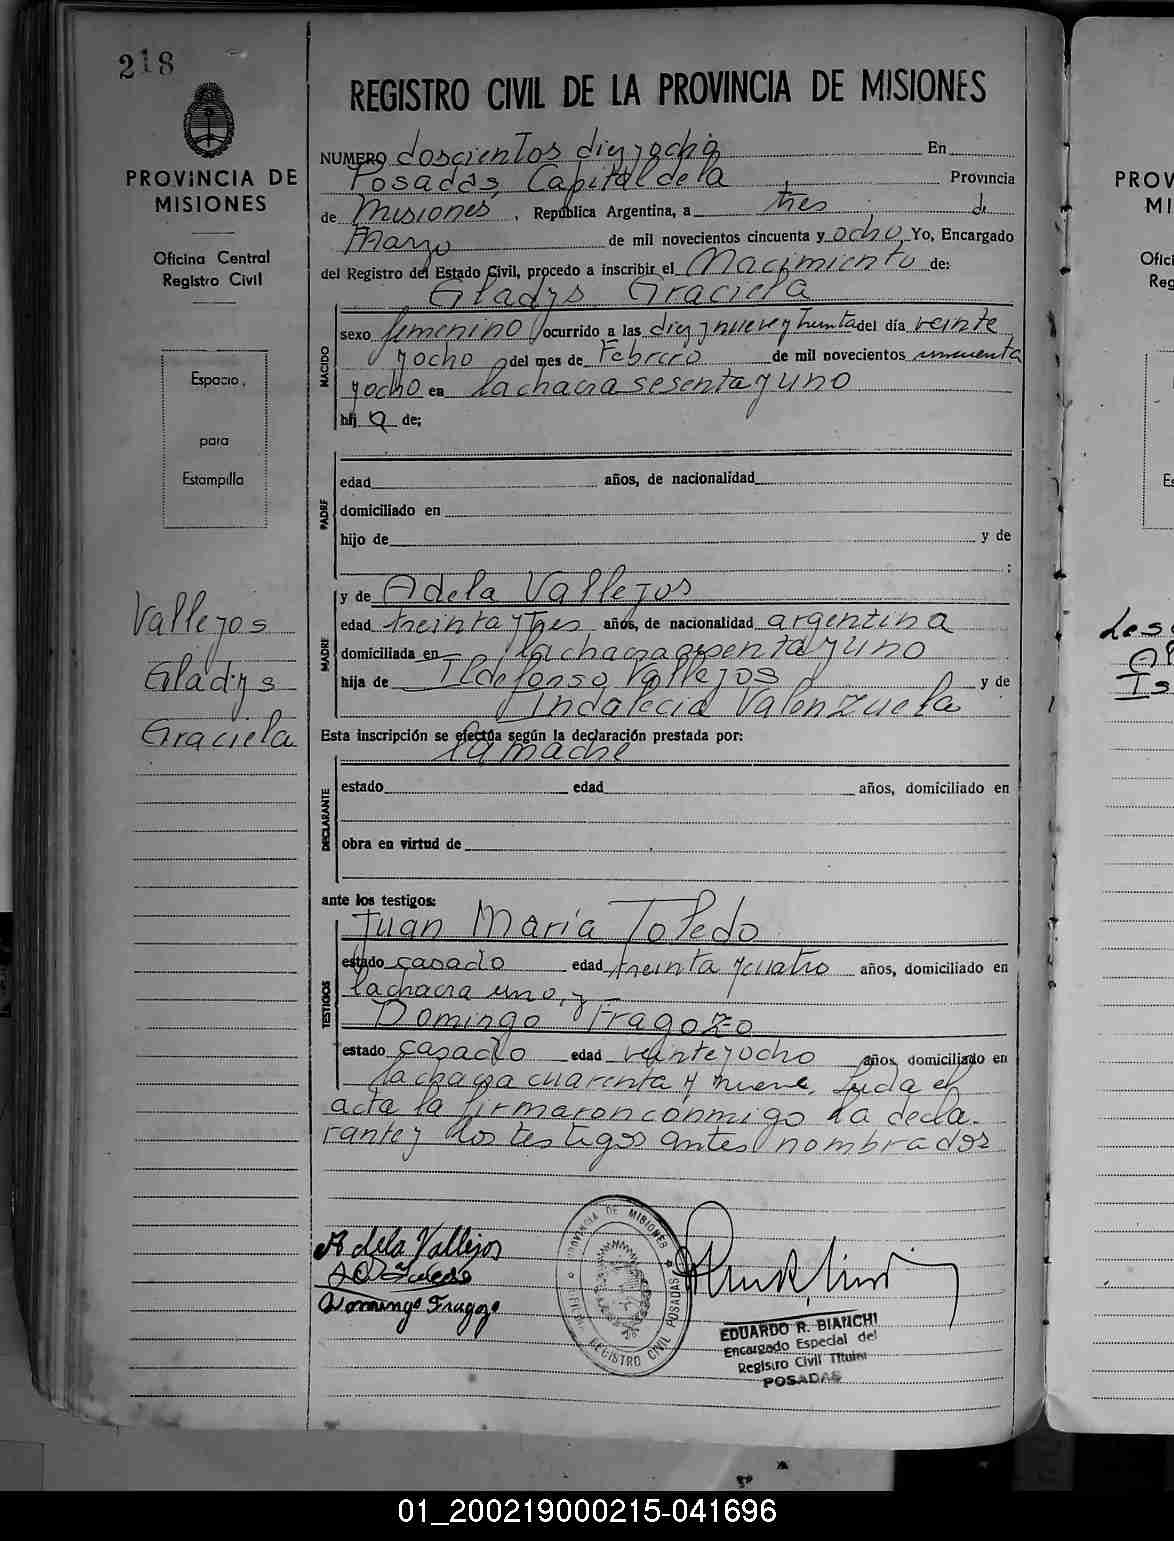 218
PROVINCIA DE
MISIONES
Oficina Central
Registro Civil
Espacio
para
Estampilla
Vallejos
Gladys
Graciela
REGISTRO CIVIL DE LA PROVINCIA DE MISIONES
NUMERO doscientos diez y ocho En
Posadas, Capital de la Provincia
de Misiones, República Argentina, a tres de
Marzo de mil novecientos cincuenta y ocho, Yo, Encargado
del Registro del Estado Civil, procedo a inscribir el Nacimiento de:
Gladys Graciela
NACIDO
sexo femenino ocurrido a las diez y nueve y treinta del día veinte
y ocho del mes de Febrero de mil novecientos cincuenta
y ocho en la chacra sesenta y uno
hija de;
PADRE
edad años, de nacionalidad
domiciliado en
hijo de y de
:
MADRE
y de Adela Vallejos
edad treinta y tres años, de nacionalidad argentina
domiciliada en la chacra sesenta y uno
hija de Ildefonso Vallejos y de
Indalecia Valenzuela
Esta inscripción se efectúa según la declaración prestada por:
la madre
DECLARANTE
estado edad años, domiciliado en
obra en virtud de
ante los testigos:
TESTIGOS
Juan María Toledo
estado casado edad treinta y cuatro años, domiciliado en
la chacra uno, y
Domingo Fragozo
estado casado edad veinte y ocho años, domiciliado en
la chacra cuarenta y nueve. Leida el
acta la firmaron conmigo la decla-
rante y los testigos antes nombrados
Adela Vallejos
Domingo Fragozo
PROVINCIA DE MISIONES
REGISTRO CIVIL POSADAS
EDUARDO R. BIANCHI
Encargado Especial del
Registro Civil Titular
POSADAS
PROV
MI
Ofici
Reg
Es
01_200219000215-041696